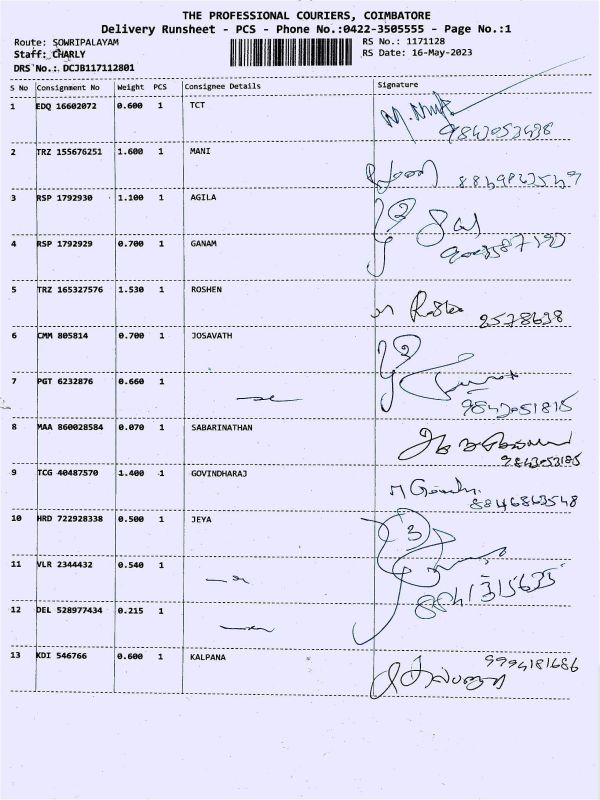 THE PROFESSIONAL COURIERS, COIMBATORE
Delivery Runsheet - PCS - Phone No.:0422-3505555 - Page No.:1
Route: SOWRIPALAYAM RS No.: 1171128
Staff: CHARLY RS Date: 16-May-2023
DRS No.: DCJB117112801
S No Consignment No Weight PCS Consignee Details Signature
1 EDQ 16602072 0.600 1 TCT
9843053498
2 TRZ 155676251 1.600 1 MANI
3 RSP 1792930 1.100 1 AGILA
4 RSP 1792929 0.700 1 GANAM
5 TRZ 165327576 1.530 1 ROSHEN
2578638
6 CMM 805814 0.700 1 JOSAVATH
7 PGT 6232876 0.660 1
9843051815
8 MAA 860028584 0.070 1 SABARINATHAN
9843053185
9 TCG 40487570 1.400 1 GOVINDHARAJ
8846863548
10 HRD 722928338 0.500 1 JEYA
3
11 VLR 2344432 0.540 1
12 DEL 528977434 0.215 1
13 KDI 546766 0.600 1 KALPANA 9994181686